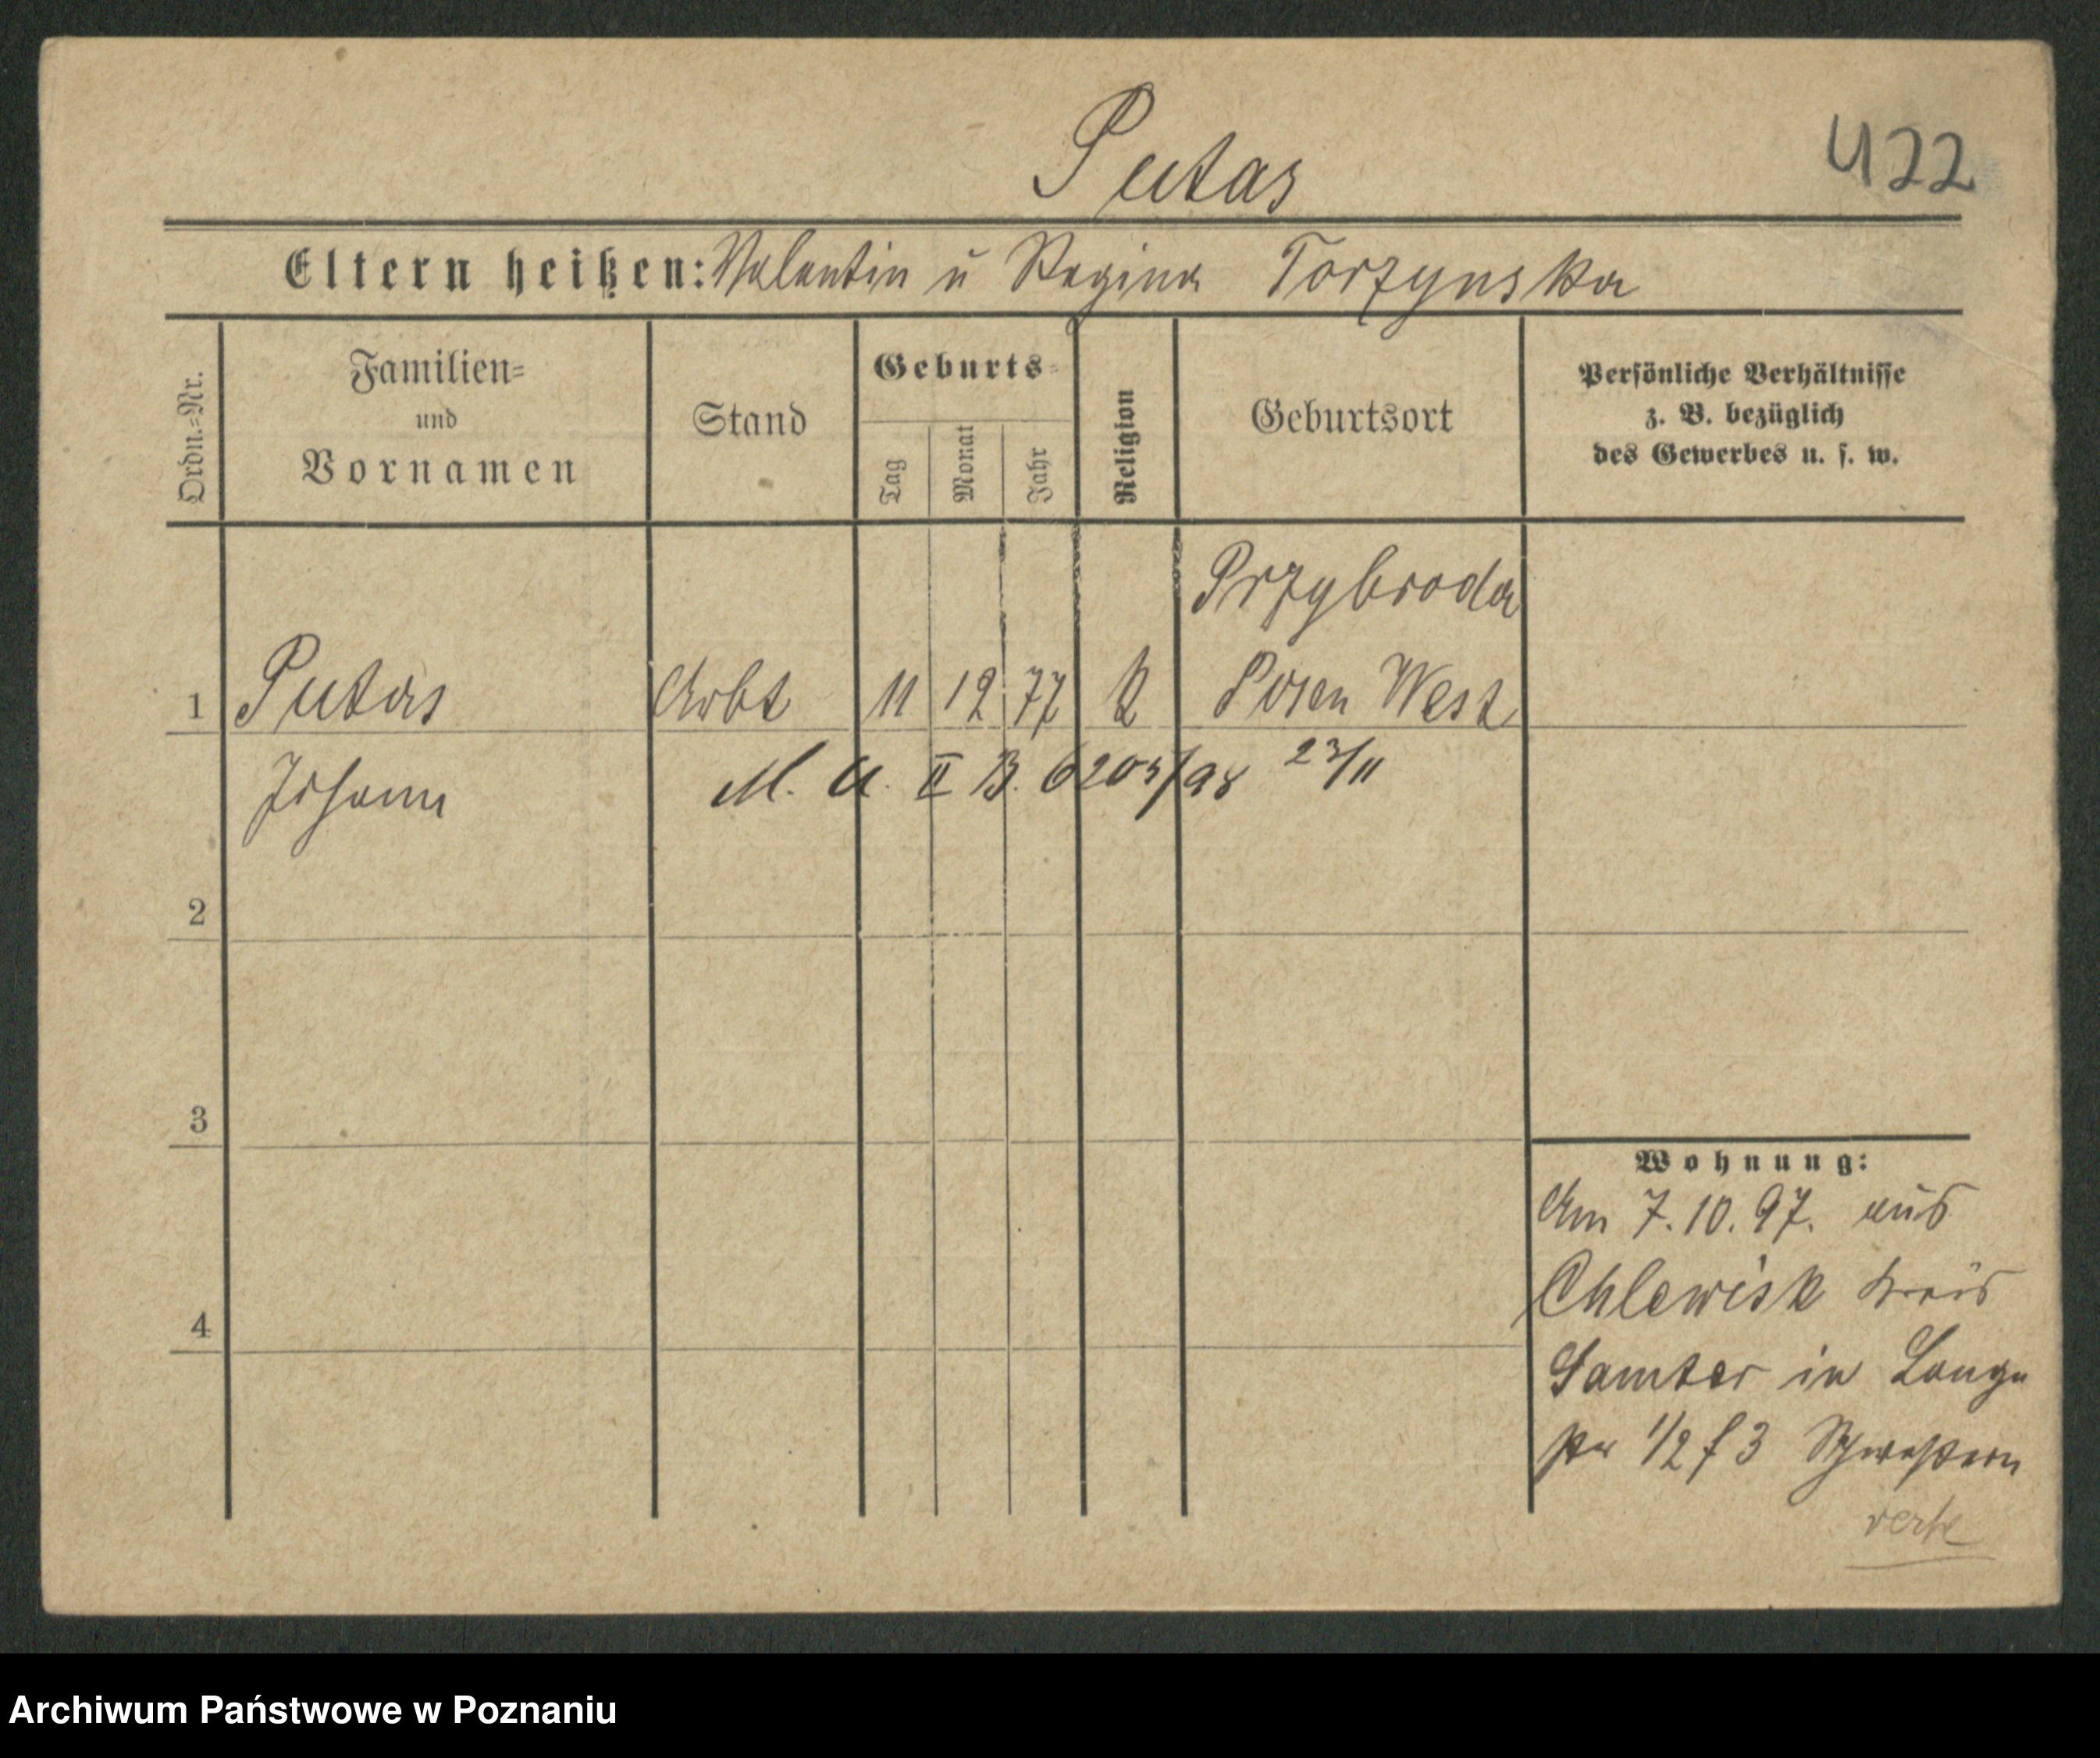 Putas
422
Eltern heißen: Valentin u Regina Torzynska
Ordn.=Nr.
Familien=
und
Vornamen
Stand
Geburts=
Tag
Monat
Jahr
Religion
Geburtsort
Persönliche Verhältnisse
z. B. bezüglich
des Gewerbes u. s. w.
Przybroda
1 Putas Arbt 11 12 77 K Posen West
Johann M. A. II B. 6205/98 23/11
2
3
4
Wohnung:
Am 7.10.97. aus
Chlewisk Kreis
Samter in
1/2 f 3 Schwestern
Archiwum Państwowe w Poznaniu